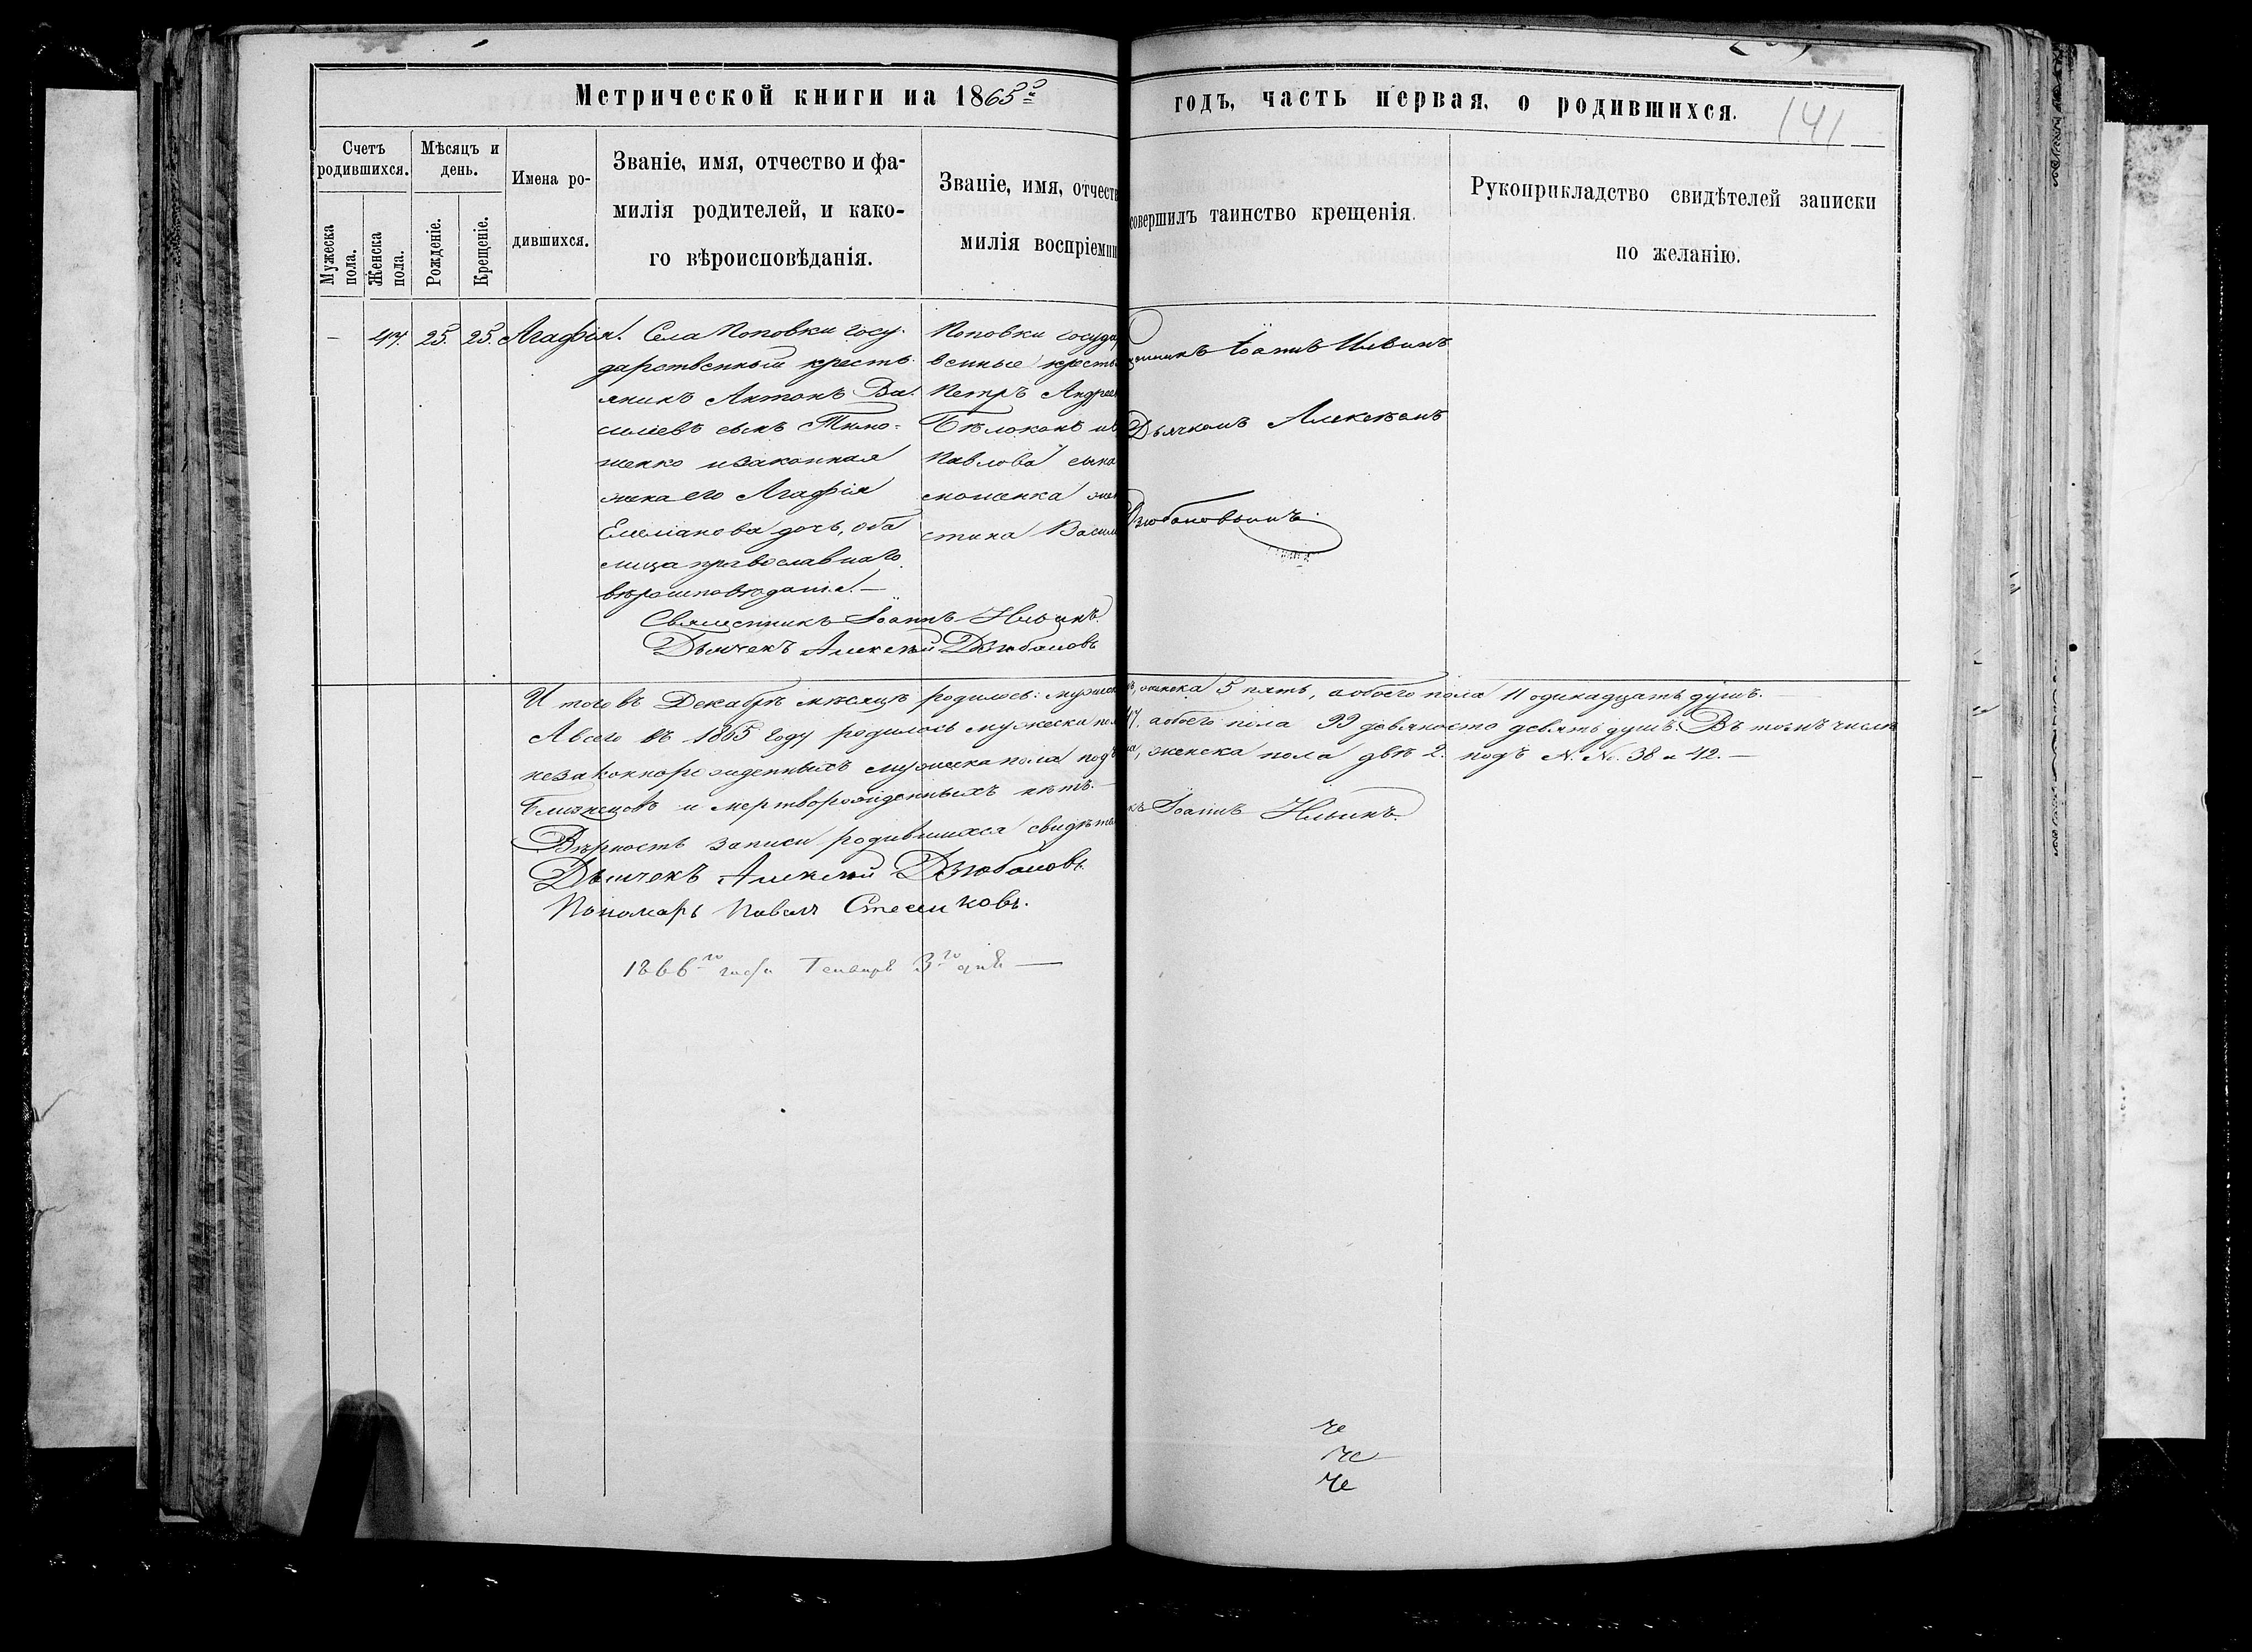 Метрической книги на 1865й
годъ, часть первая, о родившихся.
141
Счетъ родившихся.
Мужеска пола.
Женска пола.
Мѣсяцъ и день.
Рожденіе.
Крещеніе.
Имена ро-
дившихся.
Званіе, имя, отчество и фа-
милія родителей, и како-
го вѣроисповѣданія.
Званіе, имя, отчеств
милія воспріемни
совершилъ таинство крещенія.
Рукоприкладство свидѣтелей записки
по желанію.
— 47. 25. 25. Агафія.
Села Поповки госу-
дарственный кресть-
янинъ Антонъ Ва-
силіевъ сынъ Тимо-
шенко и законная
жена его Агафія
Емеліанова дочь, оба
лица православнаго
вѣроисповѣданія.—
Священникъ Іоаннъ Ильинъ.
Дьячекъ Алексѣй Дзюбановъ
Поповки государ
венные кресть
Петръ Андрее
Бѣлоконь и
Павлова сына
мошенка жен
стина Васил
Іоаннъ Ильинъ
Дьячкомъ Алексѣемъ
Дзюбановымъ.
Итого въ Декабрѣ мѣсяцѣ родилось: мужес
женска 5 пять, а обоего пола 11 одинадцать душъ.—
А всего въ 1865 году родилось мужеска пол
47, а обоего пола 99 девяносто девять душъ. Въ томъ числѣ
незаконнорожденныхъ мужеска пола подъ
женска пола двѣ 2. подъ N. No. 38 и 42.—
Близнецовъ и мерворожденныхъ нѣтъ.—
Вѣрность записи родившихся свидѣтел
къ Іоаннъ Ильинъ.
Дьячекъ Алексѣй Дзюбановъ.
Пономарь Павелъ
1866го года Генваря 3го дня —
че
че
че